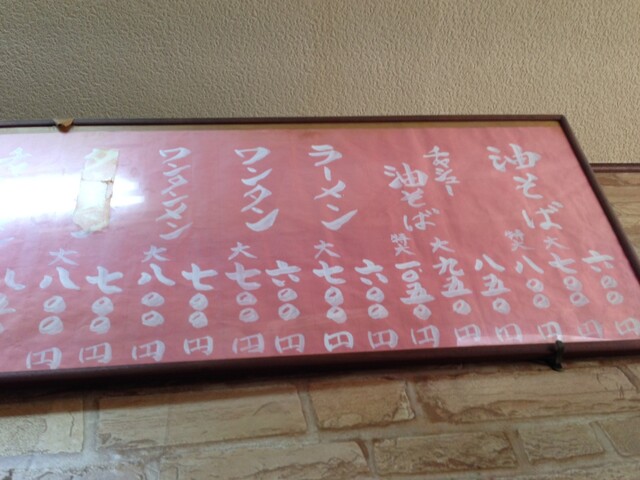 油そば
六〇〇円
大 七〇〇円
特大 八〇〇円
チャーシュー
油そば
八五〇円
大 九五〇円
特大 一〇五〇円
ラーメン
六〇〇円
大 七〇〇円
ワンタン
六〇〇円
大 七〇〇円
ワンタンメン
七〇〇円
大 八〇〇円
タ
七〇〇円
大 八〇〇円